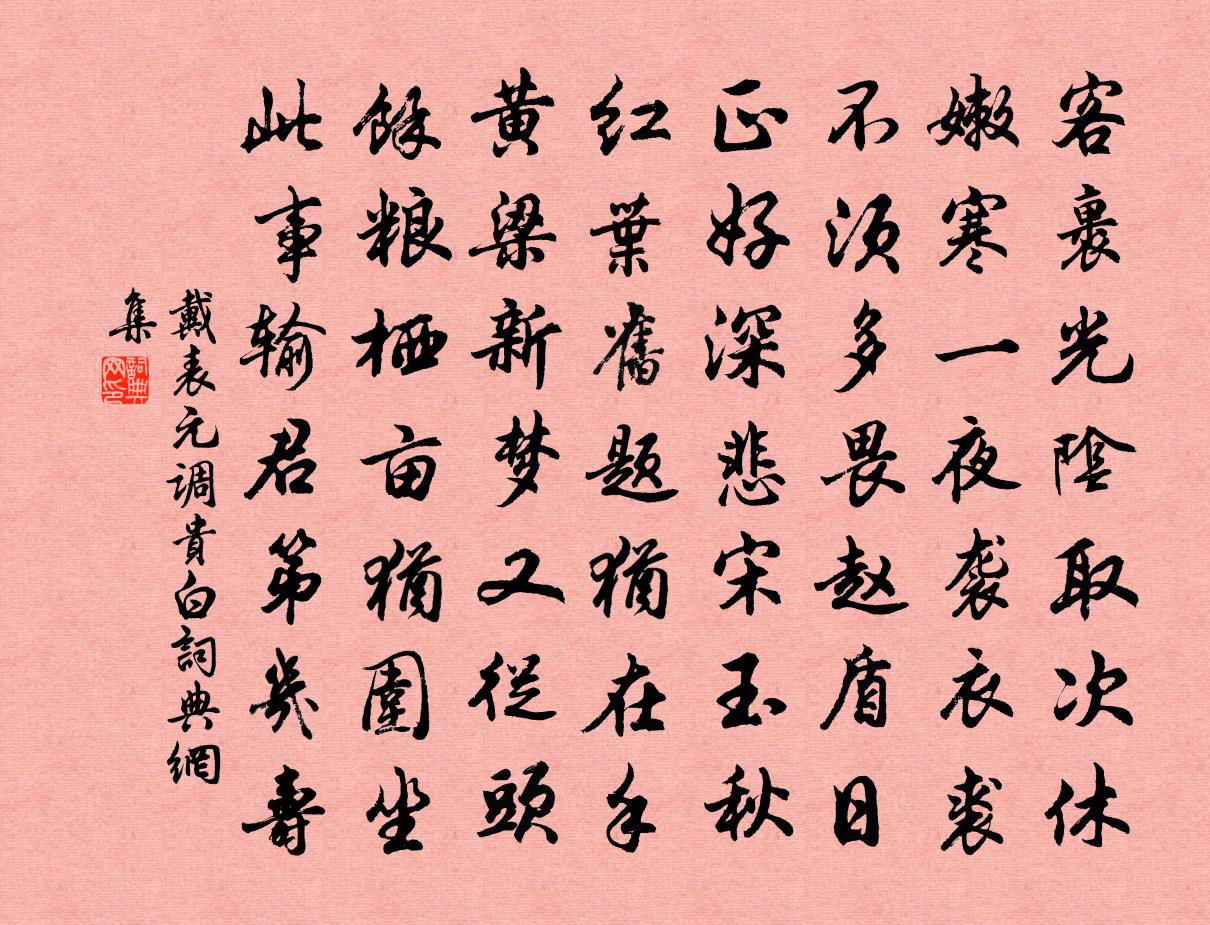 客裏光陰取次休
嫩寒一夜袭衣裘
不须多畏赵盾日
正好深悲宋玉秋
红葉舊题猶在手
黄粱新梦又從頭
餘粮栖亩猶圍坐
此事输君第幾壽
戴表元调貴白詞典網
集
詞典
网印